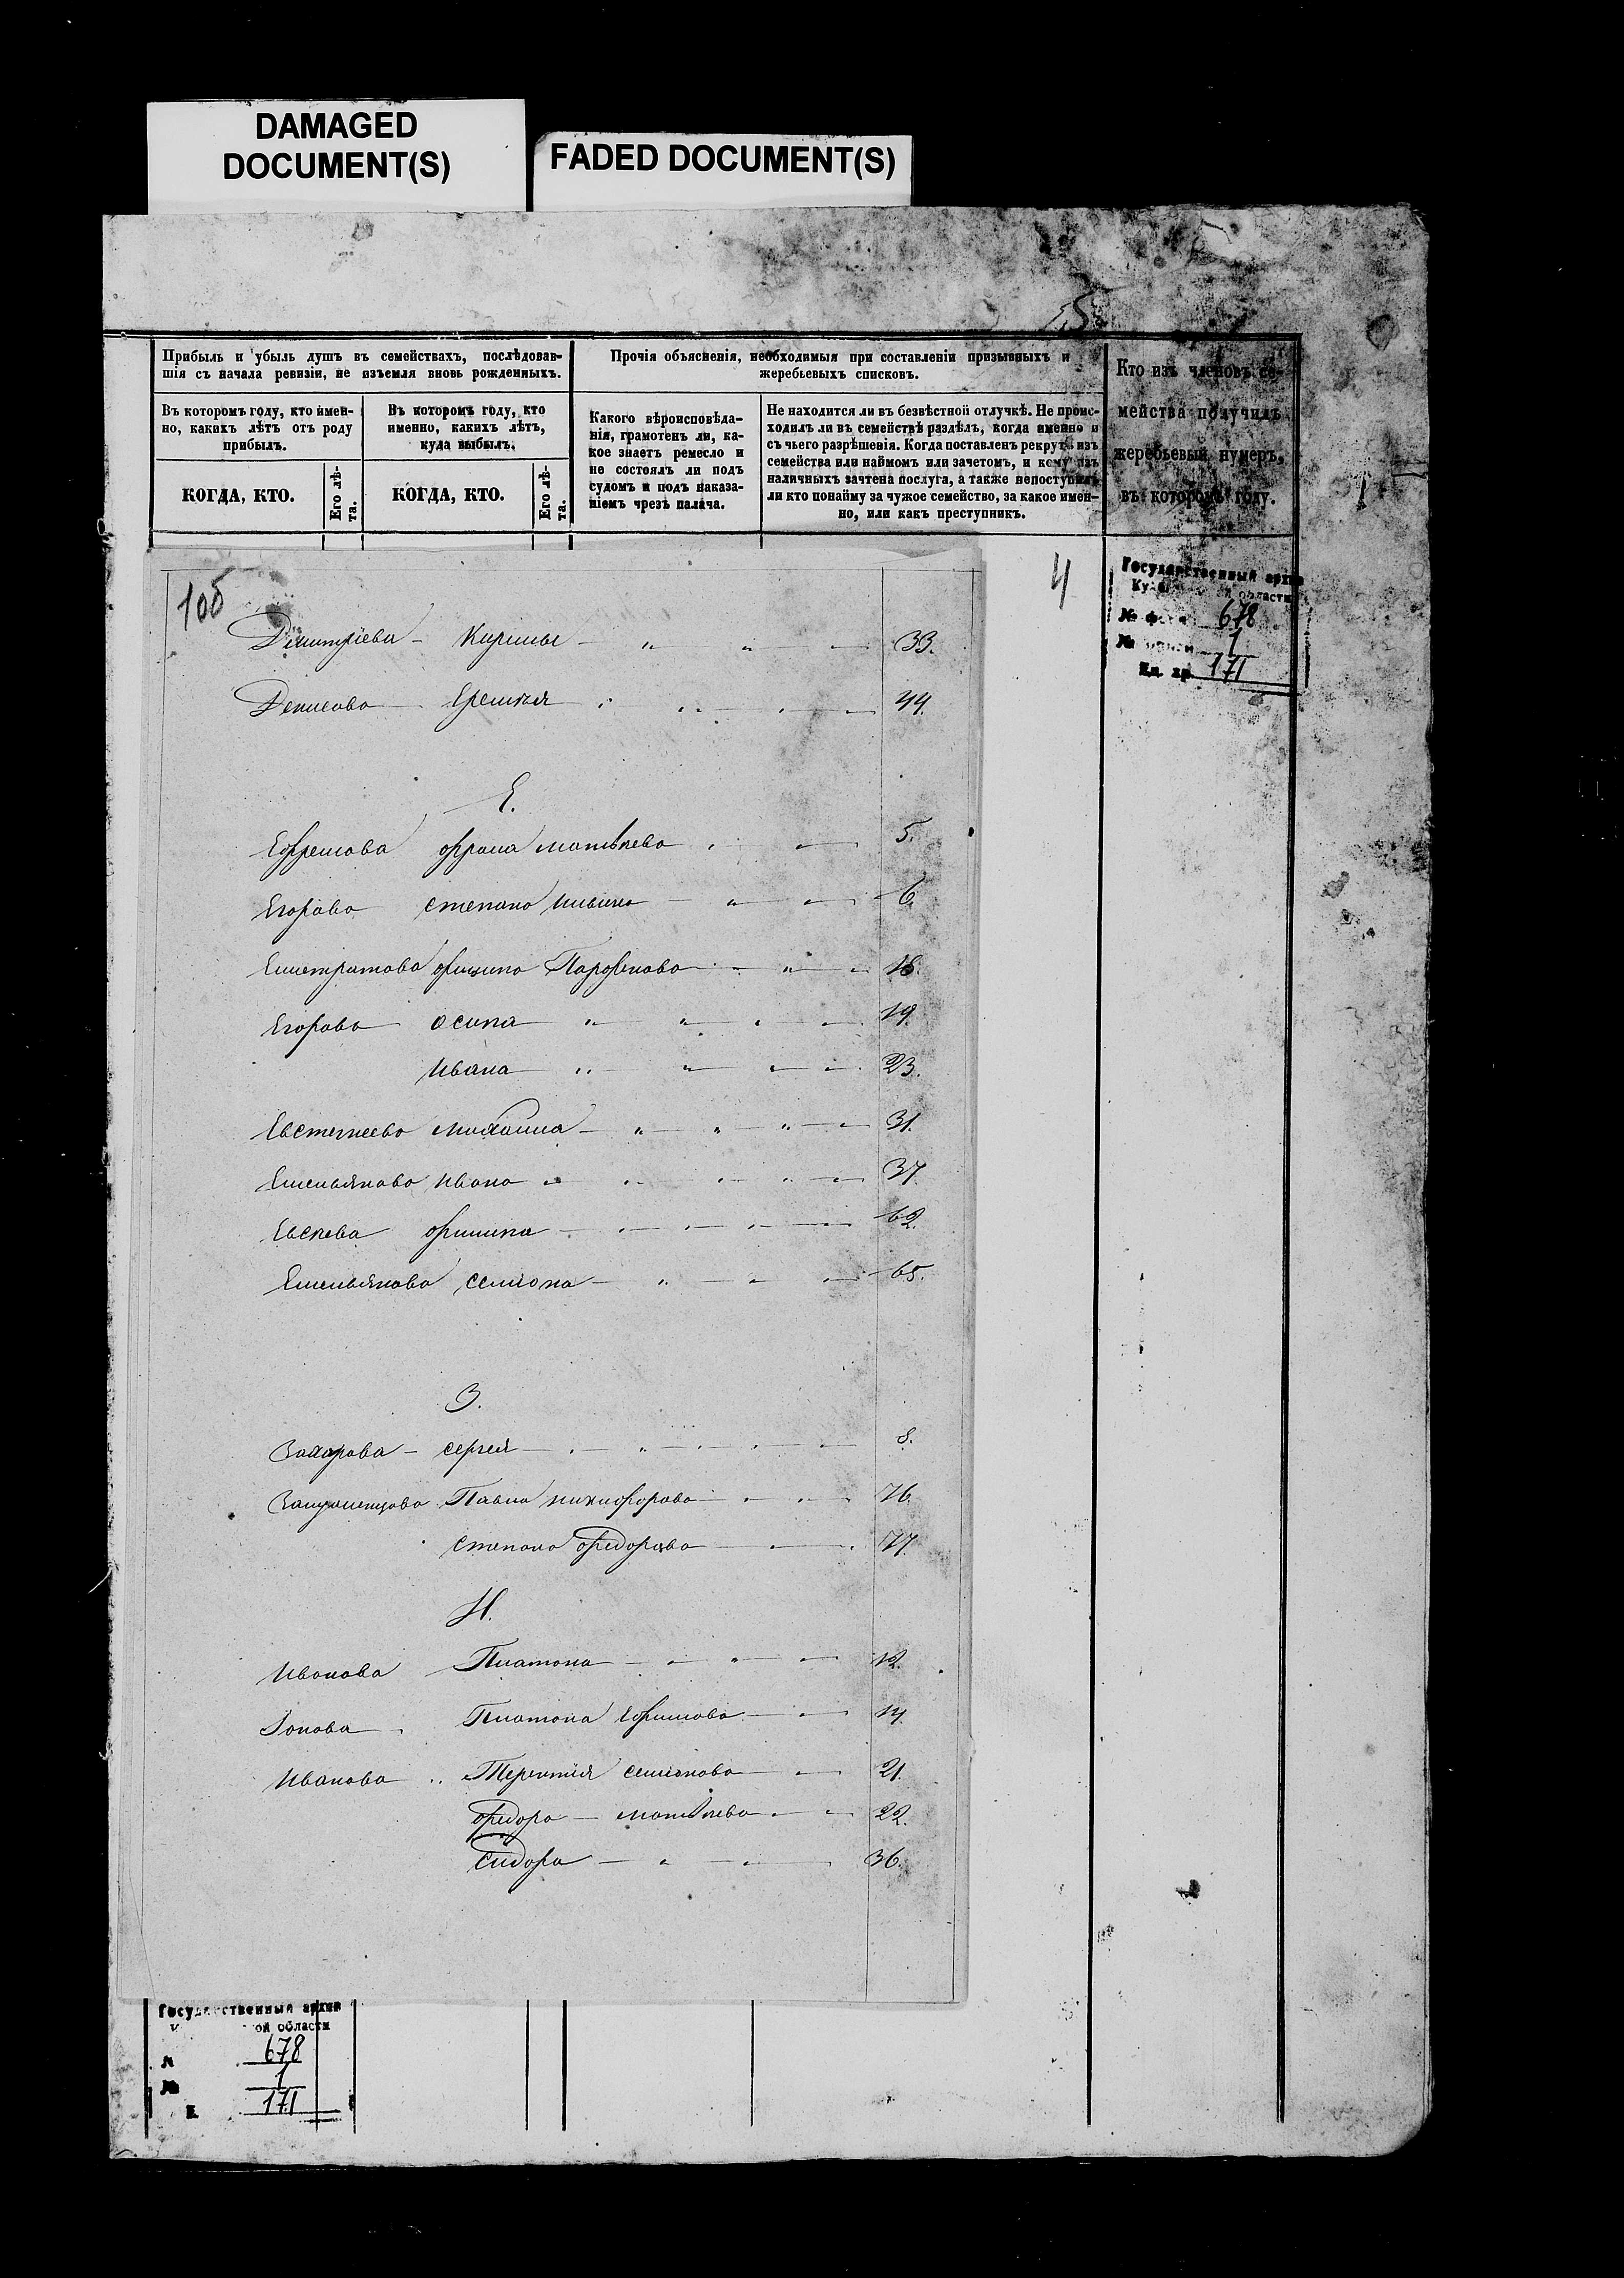 DAMAGED
DOCUMENT(S)
FADED DOCUMENT(S)
Прибыль и убыль душъ въ семействахъ, послѣдовав-
шія съ начала ревизіи, не изъемля вновь рожденныхъ.
Въ которомъ году, кто имен-
но, какихъ лѣтъ отъ роду
прибылъ.
КОГДА, КТО.
Его лѣ-
та.
Въ которомъ году, кто
именно, какихъ лѣтъ,
куда выбылъ.
КОГДА, КТО.
Его лѣ-
та.
Прочія объясненія, необходимыя при составленіи призывныхъ и
жеребьевыхъ списковъ.
Какого вѣроисповѣда-
нія, грамотенъ ли, ка-
кое знаетъ ремесло и
не состоялъ ли подъ
судомъ и подъ наказа-
ніемъ чрезъ палача.
Не находится ли въ безвѣстной отлучкѣ. Не проис-
ходилъ ли въ семействѣ раздѣлъ, когда именно и
съ чьего разрѣшенія. Когда поставленъ рекрутъ изъ
семейства или наймомъ или зачетомъ, и кому изъ
наличныхъ зачтена послуга, а также непоступилъ
ли кто понайму за чужое семейство, за какое имен-
но, или какъ преступникъ.
Кто изъ членовъ се-
мейства получилъ
жеребьевый нумеръ,
въ которомъ году.
4
Государственный архив
области
678
1
171
Дмитріева - Кирилы 33.
Денисова Еремѣя 44.
Е.
Ефремова Фрола Матвѣева 5.
Егорова Степана Ильина 6.
Елистратова Филипа Парфенова 18.
Егорова Осипа 19.
Ивана 23.
Евстегнеева Михаила 31.
Емельянова Ивана 37.
Евсѣева Филипа 62.
Емельянова Семіона 65.
З.
Захарова - Сергея 8.
Павла Никифорова 76.
Степана Федорова 77.
И.
Иванова Платона 12.
Іонова Платона Ефимова 14.
Иванова Терентія Семіонова 21.
Федора - Матвѣева 22.
Сидора 36.
Государственный архив
ой области
678
1
171